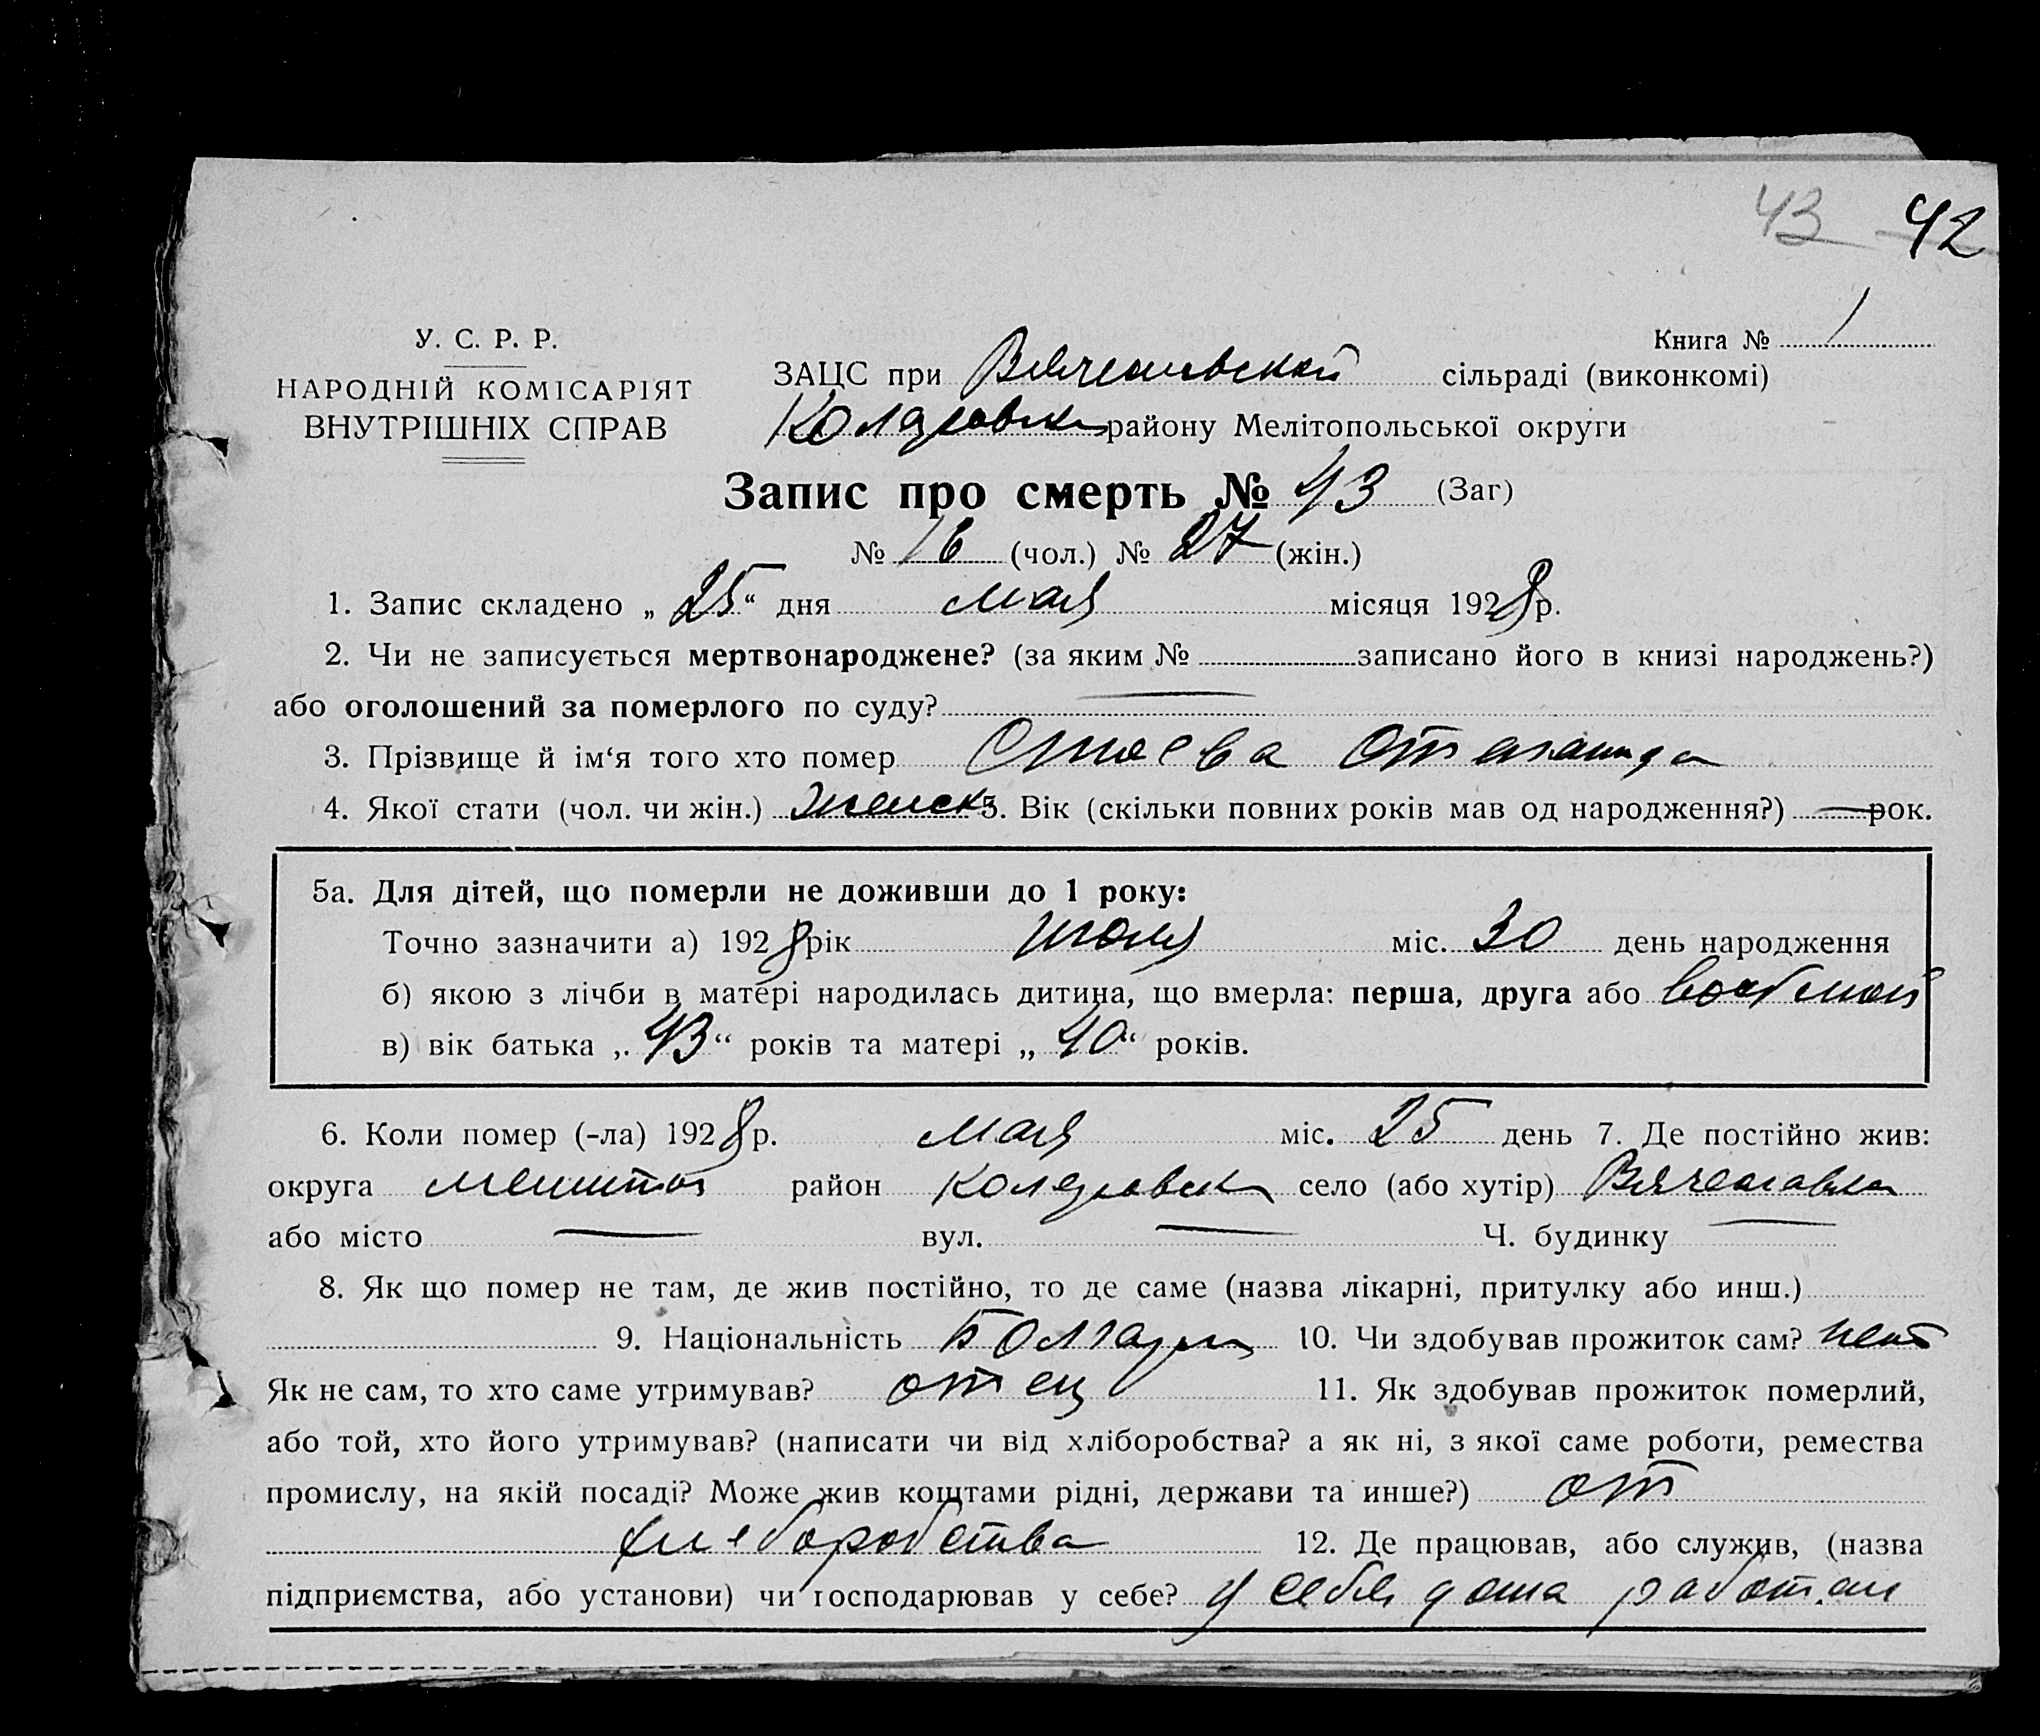 43 42
У. С. Р. Р.
НАРОДНІЙ КОМІСАРІЯТ
ВНУТРІШНІХ СПРАВ
Книга № 1
ЗАЦС при Вячеславской сільраді (виконкомі)
Коларовск району Мелітопольської округи
Запис про смерть № 43 (Заг)
№ 16 (чол.) № 27 (жін.)
1. Запис складено „ 25 “ дня мая місяця 1928 р.
2. Чи не записується мертвонароджене? (за яким № записано його в книзі народжень?)
або оголошений за померлого по суду? —
3. Прізвище й ім‘я того хто помер
4. Якої стати (чол. чи жін.) женск 5. Вік (скільки повних років мав од народження?) — рок.
5а. Для дітей, що померли не доживши до 1 року:
Точно зазначити а) 1928 рік міс. 30 день народження
б) якою з лічби в матері народилась дитина, що вмерла: перша, друга або восьмой
в) вік батька „ 43 “ років та матері „ 40 “ років.
6. Коли помер (-ла) 1928 р. мая міс. 25 день 7. Де постійно жив:
округа мелитоп район Коларовск село (або хутір) Вячеславка
або місто — вул. — Ч. будинку —
8. Як що помер не там, де жив постійно, то де саме (назва лікарні, притулку або инш.)
9. Національність Болгары 10. Чи здобував прожиток сам? нет
Як не сам, то хто саме утримував? отец 11. Як здобував прожиток померлий,
або той, хто його утримував? (написати чи від хліборобства? а як ні, з якої саме роботи, ремества
промислу, на якій посаді? Може жив коштами рідні, держави та инше?) от
хлеборобства 12. Де працював, або служив, (назва
підприємства, або установи) чи господарював у себе? у себя дома работал